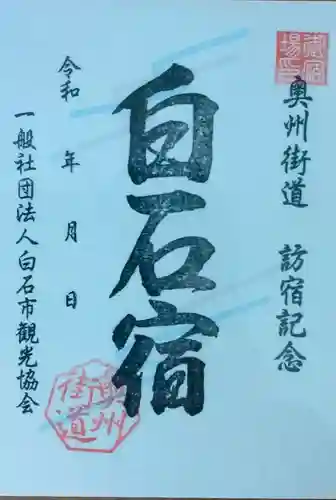 奥州街道 訪宿記念
白石宿
令和 年 月 日
一般社団法人白石市観光協会
奥州
街道